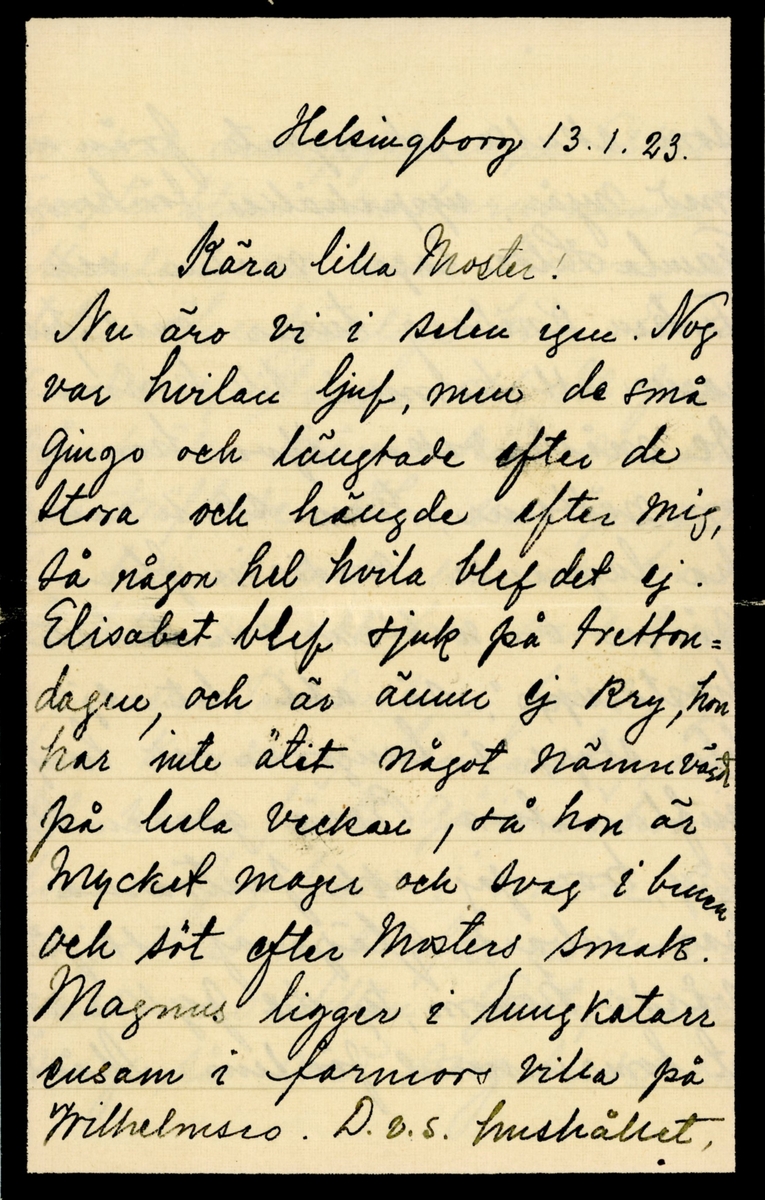 Helsingborg 13.1.23.
Kära lilla Moster!
Nu äro vi i selen igen. Nog
var hvilan ljuf, men de små
gingo och längtade efter de
stora och hängde efter mig,
så någon hel hvila blef det ej.
Elisabet blef sjuk på tretton=
dagen, och är ännu ej kry, hon
har inte ätit något nämnvärdt
på hela veckan, så hon är
mycket mager och svag i benen
och söt efter Mosters smak.
Magnus ligger i lungkatarr
ensam i farmors villa på
Wilhelmsro. D.v.s. hushållet,